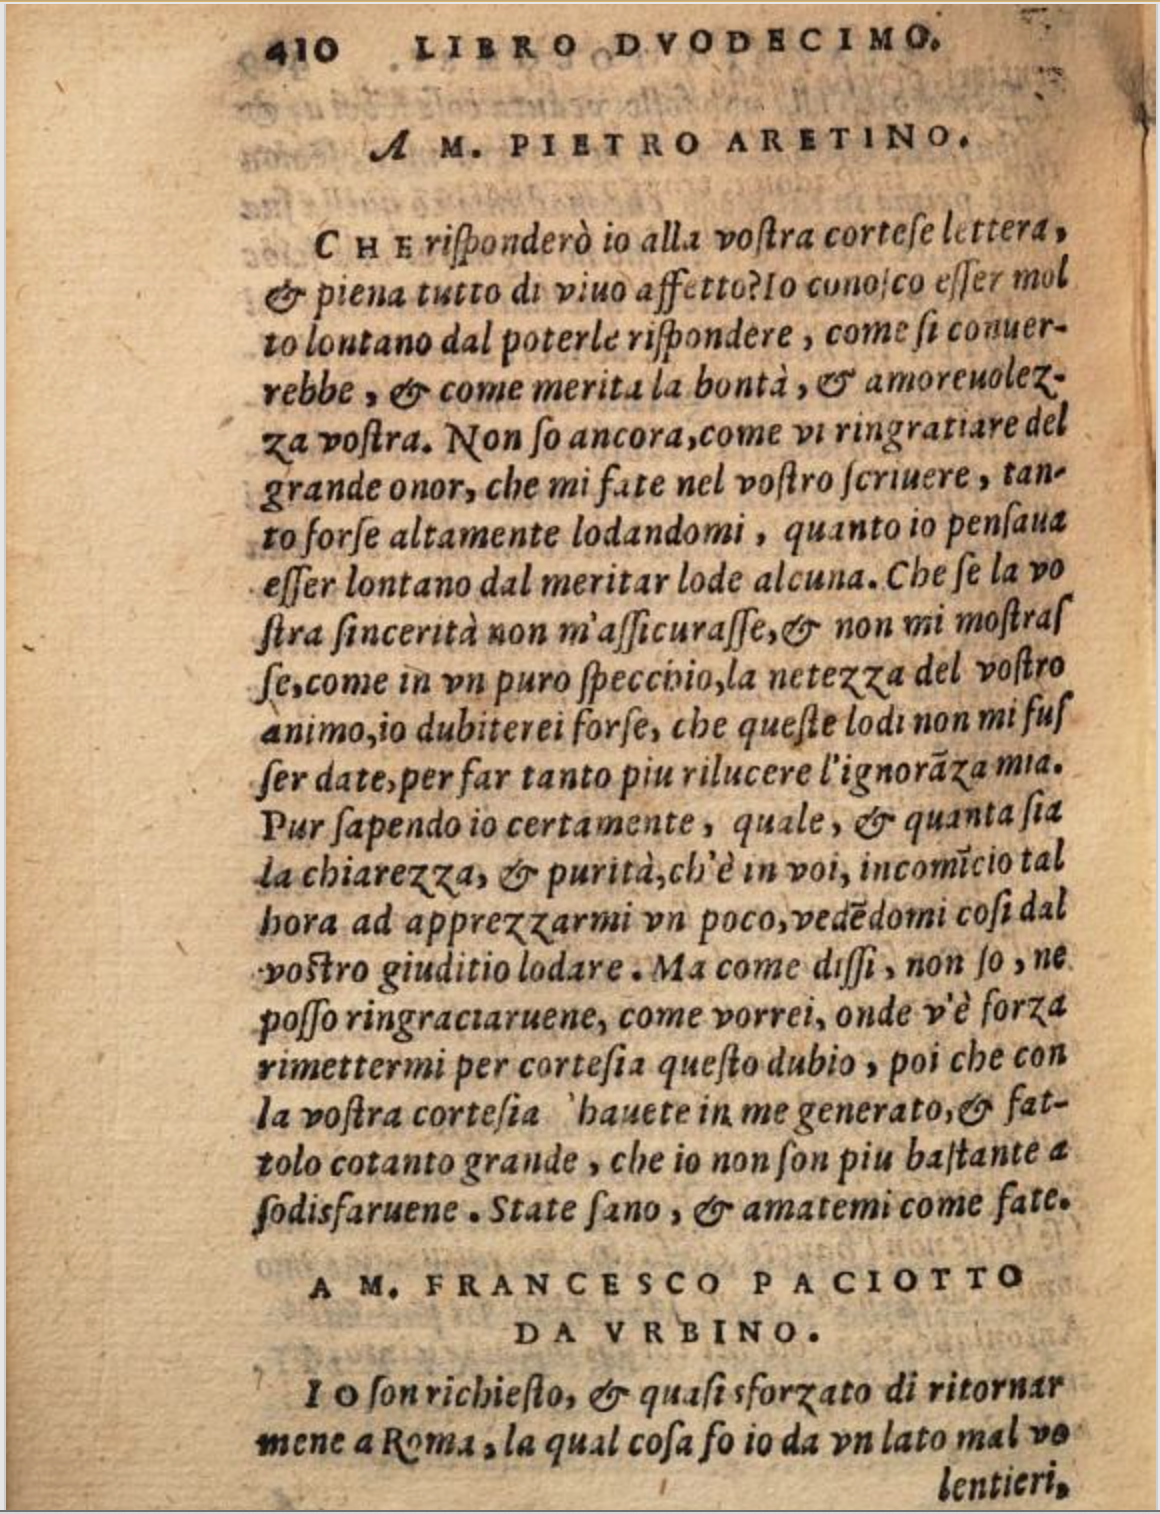 410 LIBRO DVODECIMO.
A M. PIETRO ARETINO.
CHE riſponderò io alla voſtra corteſe lettera,
& piena tutto di viuo affetto? Io conoſco eſſer mol
to lontano dal poterle riſpondere, come ſi conuer-
rebbe, & come merita la bontà, & amoreuolez-
za voſtra. Non ſo ancora, come vi ringratiare del
grande onor, che mi fate nel voſtro ſcriuere, tan-
to forſe altamente lodandomi, quanto io penſaua
eſſer lontano dal meritar lode alcuna. Che ſe la vo
ſtra ſincerità non m'aſſicuraſſe, & non mi moſtraſ
ſe, come in vn puro ſpecchio, la netezza del voſtro
animo, io dubiterei forſe, che queſte lodi non mi fuſ
ſer date, per far tanto piu rilucere l'ignorãza mia.
Pur ſapendo io certamente, quale, & quanta ſia
la chiarezza, & purità, ch'è in voi, incomĩcio tal
hora ad apprezzarmi vn poco, vedẽdomi coſi dal
voſtro giuditio lodare. Ma come diſſi, non ſo, ne
poſſo ringraciaruene, come vorrei, onde v'è forza
rimettermi per corteſia queſto dubio, poi che con
la voſtra corteſia 'hauete in me generato, & fat-
tolo cotanto grande, che io non ſon piu baſtante a
ſodisfaruene. State ſano, & amatemi come fate.
A M. FRANCESCO PACIOTTO
DA VRBINO.
IO ſon richieſto, & quaſi sforzato di ritornar
mene a Roma, la qual coſa fo io da vn lato mal vo
lentieri,